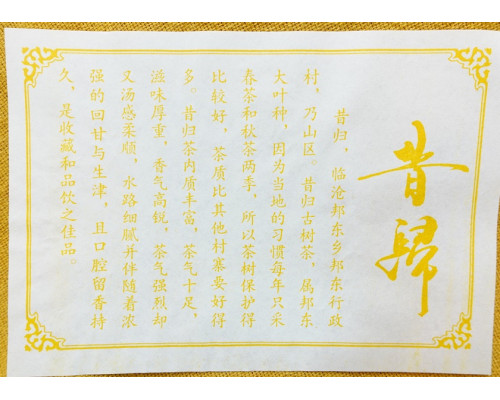 昔歸
昔归，临沧邦东乡邦东行政
村，乃山区。昔归古树茶，属邦东
大叶种，因为当地的习惯每年只采
春茶和秋茶两季，所以茶树保护得
比较好，茶质比其他村寨要好得
多。昔归茶肉质丰富，茶气十足，
滋味厚重，香气高锐，茶气强烈却
又汤感柔顺，水路细腻并伴随着浓
强的回甘与生津，且口腔留香持
久，是收藏和品饮之佳品。